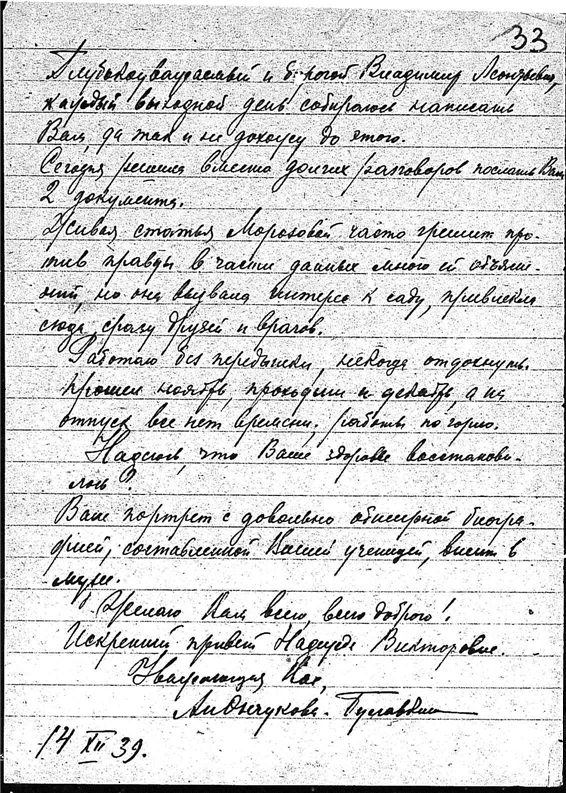 33
Глубокоуважаемый и дорогой Владимир Леонтьевич,
каждый выходной день собиралась написать
Вам, да так и не дохожу до этого.
Сегодня решила вместо долгих разговоров послать Вам
2 документа.
Живая статья Морозовой часто грешит про-
тив правды в части данных мною ей объясне-
ний, но она вызвала интерес к саду, привлекла
сюда сразу друзей и врагов.
Работаю без передышки, некогда отдохнуть.
Прошел ноябрь, проходит и декабрь, а на
отпуск все нет времени. работы по горло.
Надеюсь, что Ваше здоровье восстанови-
лось?
Ваш портрет с довольно обширной биогра-
фией, составленной Вашей ученицей, висит в
музее.
Желаю Вам всего, всего доброго!
Искренний привет Надежде Викторовне.
Уважающая Вас,
14 XII 39.